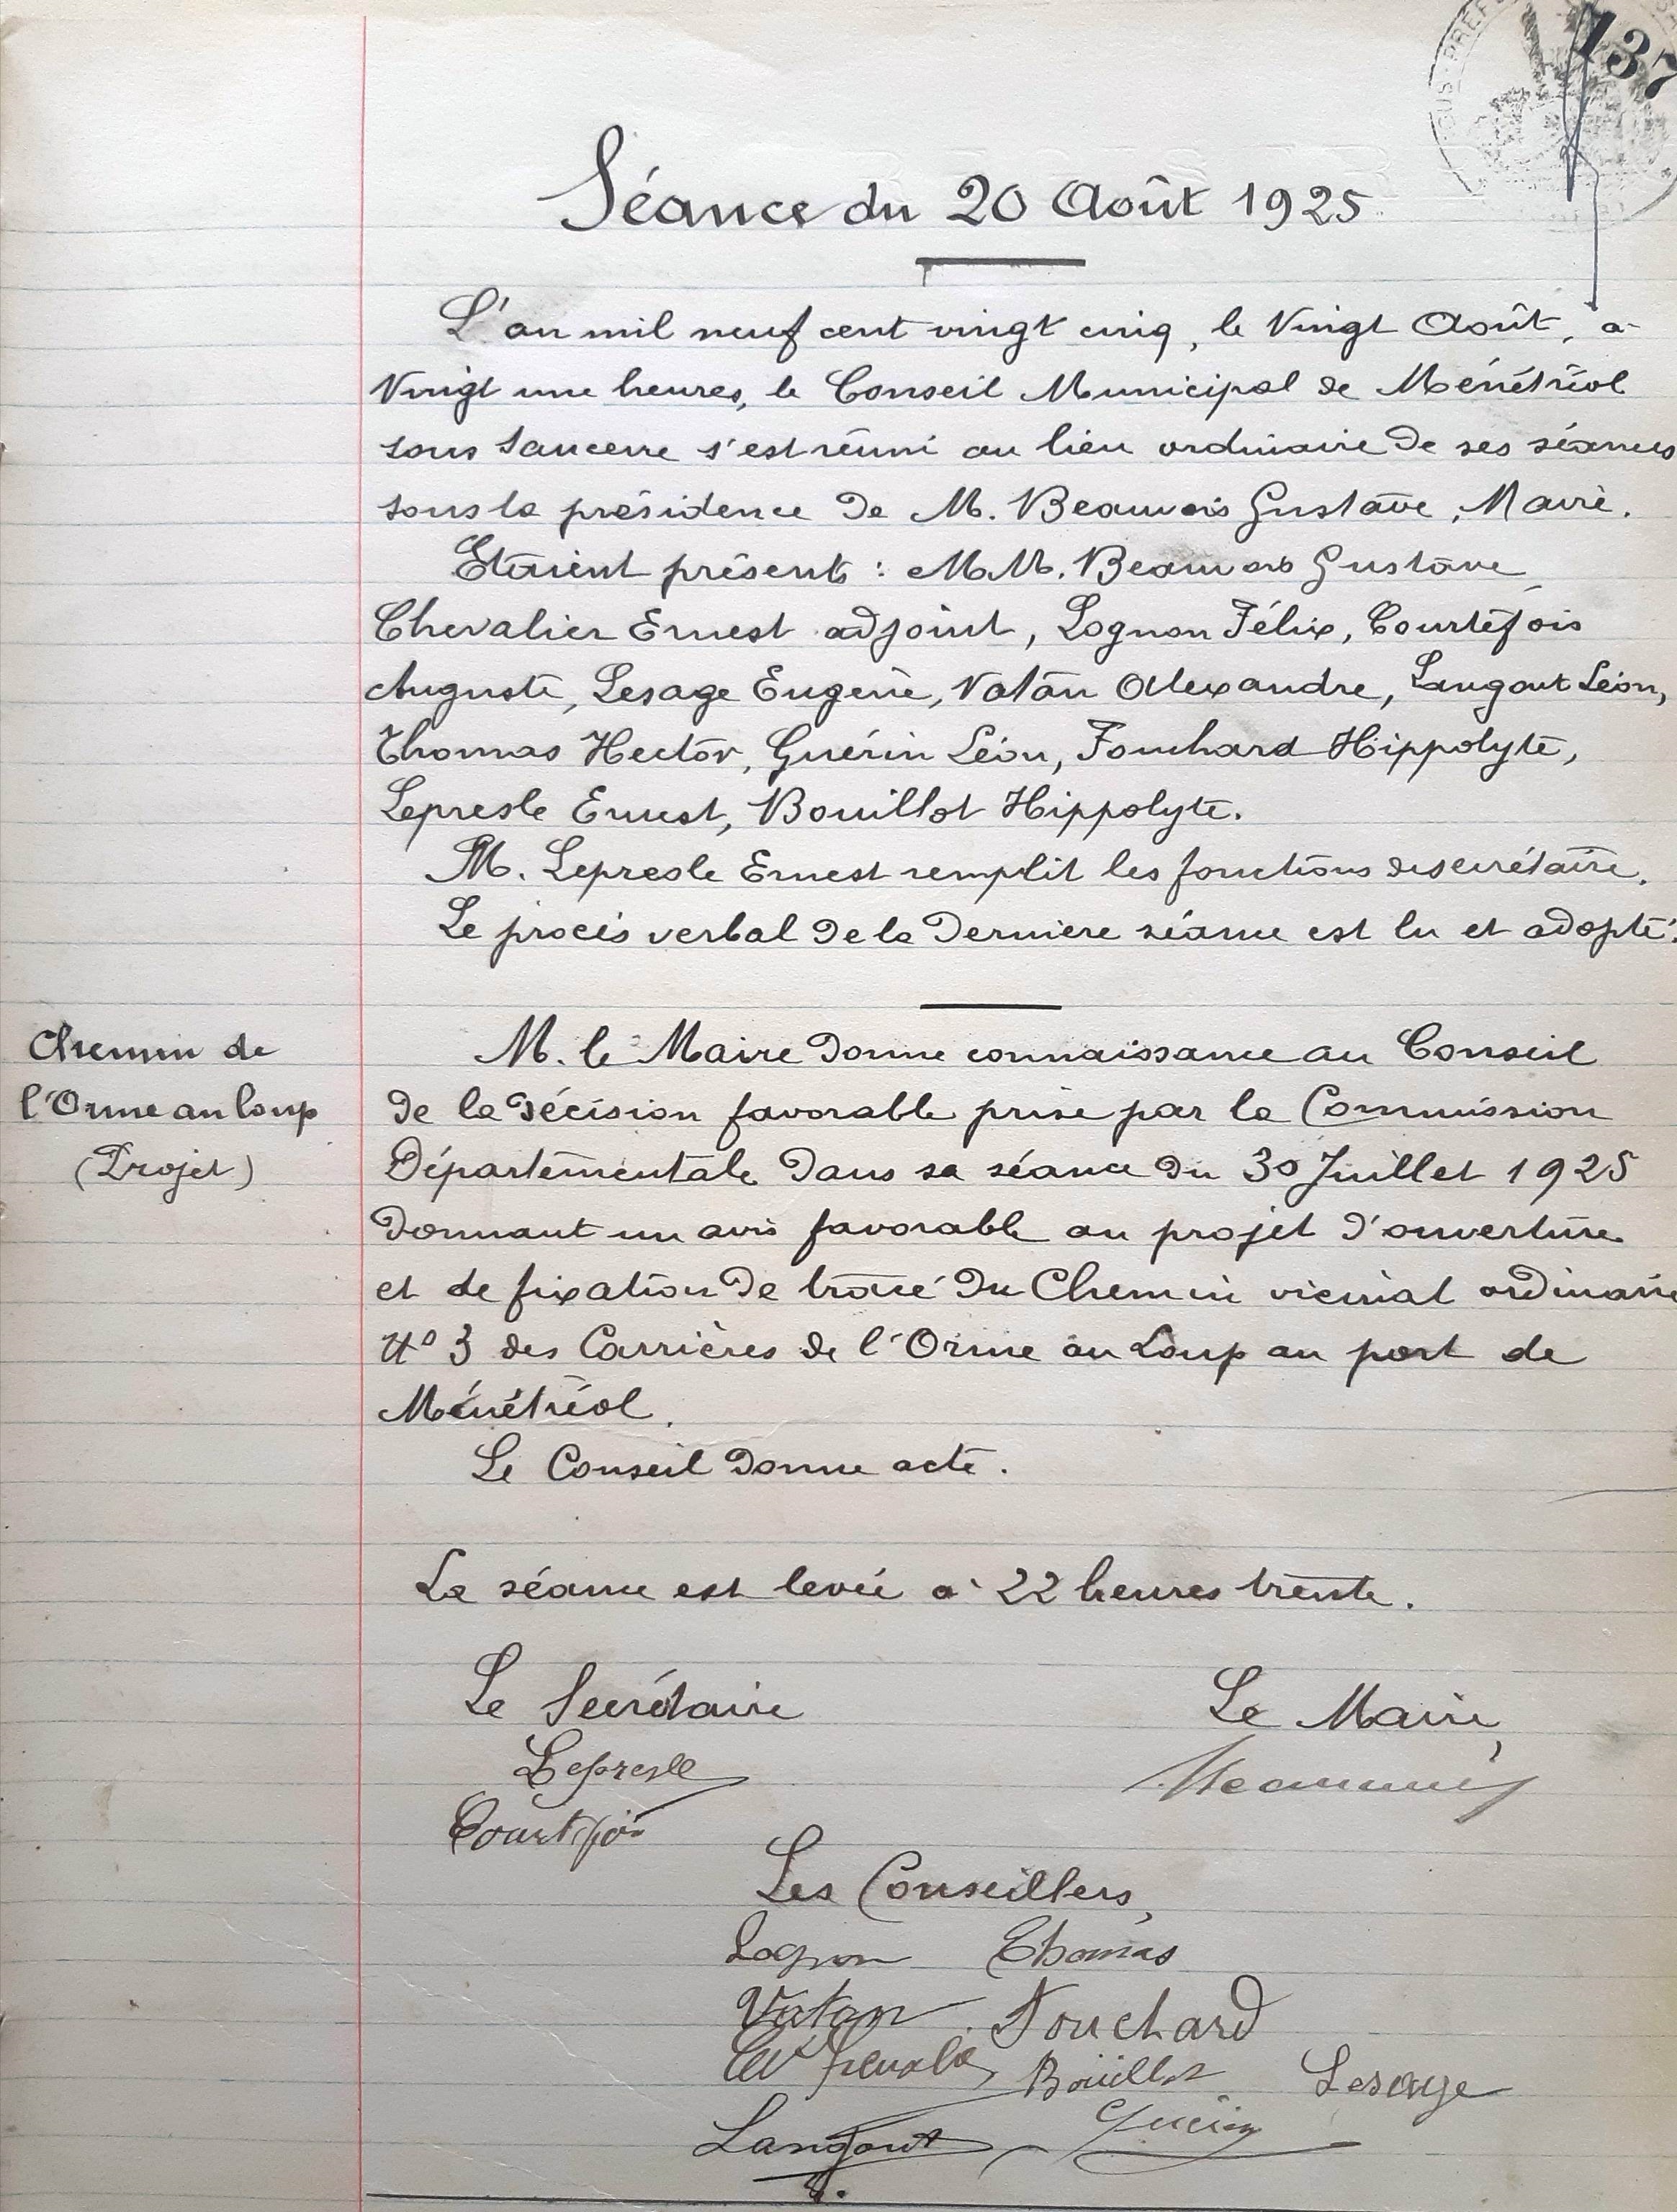 137
SOUS-PRÉF
Séance du 20 Août 1925
L'an mil neuf cent vingt cinq, le Vingt Août, à
Vingt une heures, le Conseil Municipal de Ménétréol
sous Sancerre s'est réuni au lieu ordinaire de ses séances
sous la présidence de M. Beauvois Gustave, Maire.
Etaient présents : MM. Beauvois Gustave,
Chevalier Ernest adjoint, Lognon Félix, Courtefois
Auguste, Lesage Eugène, Vatan Alexandre, Langout Léon,
Thomas Hector, Guérin Léon, Fouchard Hippolyte,
Lepresle Ernest, Bouillot Hippolyte.
M. Lepresle Ernest remplit les fonctions de secrétaire.
Le procès verbal de la dernière séance est lu et adopté.
Chemin de
l'Orme au loup
(Projet)
M. le Maire donne connaissance au Conseil
de la décision favorable prise par la Commission
Départementale dans sa séance du 30 Juillet 1925
donnant un avis favorable au projet d'ouverture
et de fixation de tracé du Chemin vicinal ordinaire
N° 3 des Carrières de l'Orme au Loup au port de
Ménétréol.
Le Conseil donne acte.
La séance est levée à 22 heures trente.
Le Secrétaire
Le Maire,
Lepresle
Les Conseillers,
Lognon Thomas
Vatan Fouchard
Bouillot Lesage
Langout Guérin